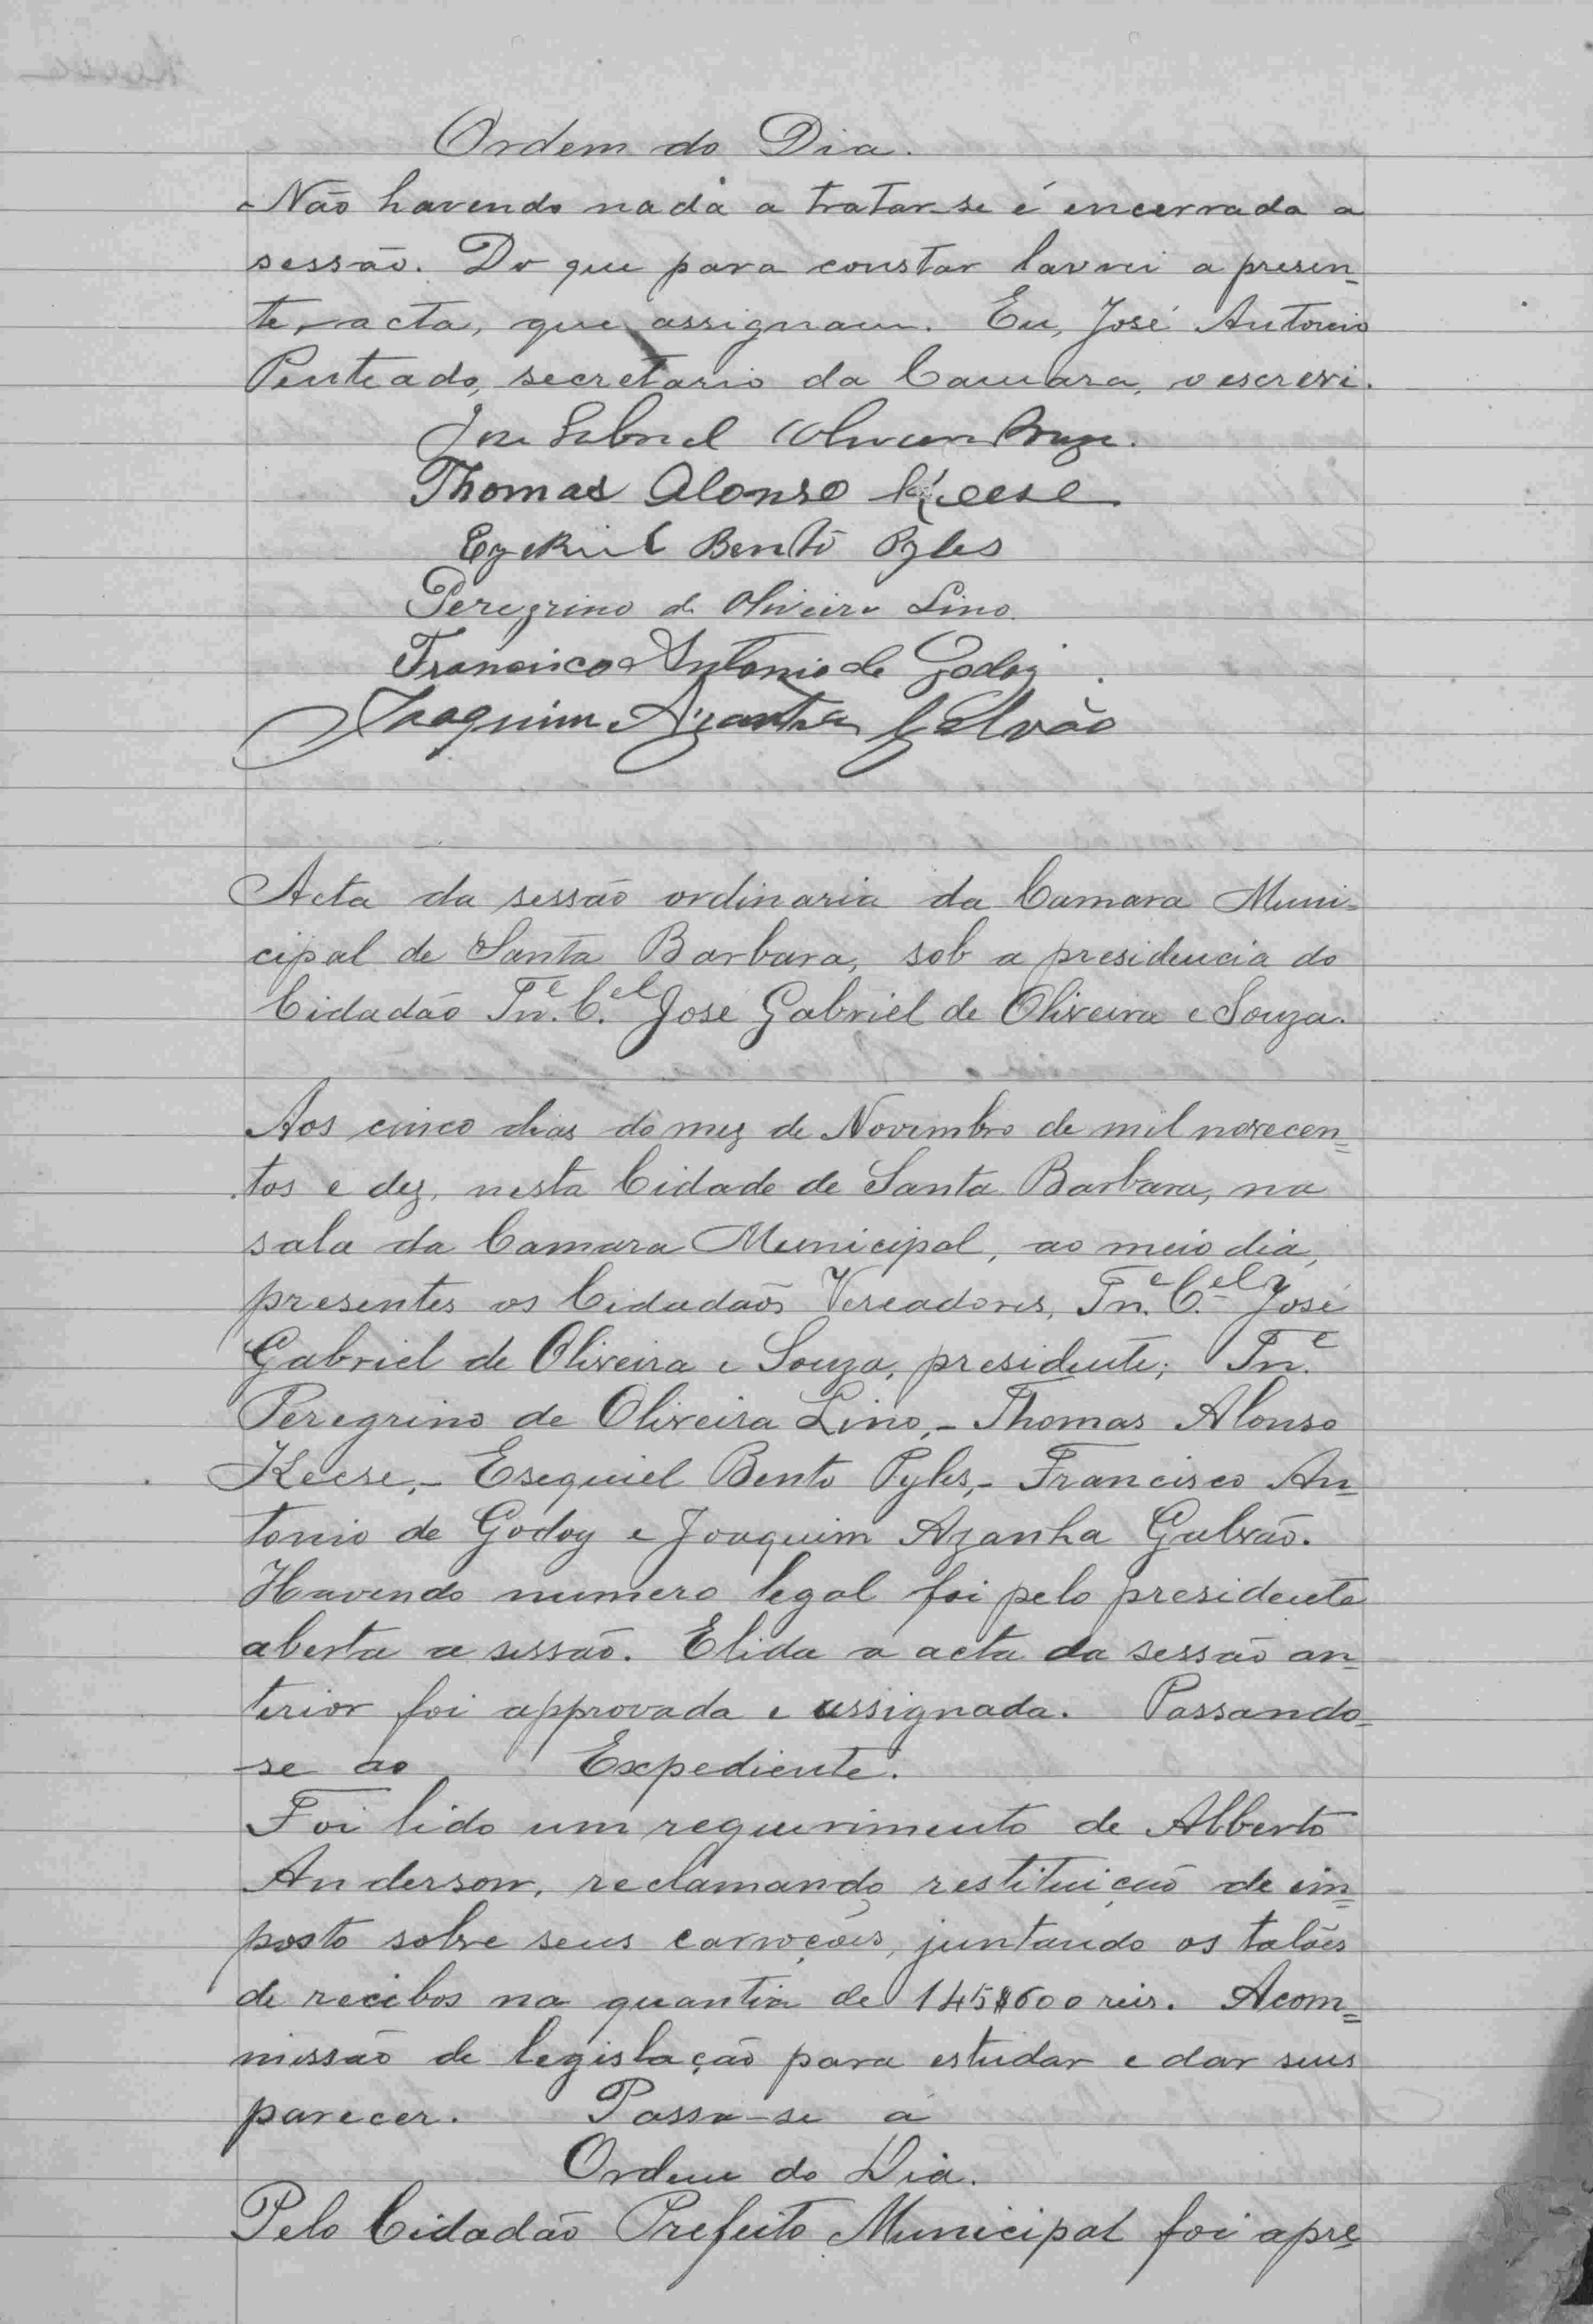 Ordem do Dia.
Não havendo nada a tratar-se é encerrada a
sessão. Do que para constar lavrei a presen=
te acta, que assignam. Eu, José Antonio
Penteado, secretario da Camara, o escrevi.
José Gabriel Oliveira Souza.
Thomas Alonso Keese
Ezekiel Bento Pyles
Peregrino de Oliveira Lino.
Francisco Antonio de Godoy.
Joaquim Azanha Galvão
Acta da sessão ordinaria da Camara Muni=
cipal de Santa Barbara, sob a presidencia do
Cidadão Tn.e C.el José Gabriel de Oliveira e Souza.
Aos cinco dias do mez de Novembro de mil novecen=
tos e dez, nesta Cidade de Santa Barbara, na
sala da Camara Municipal, ao meio dia,
presentes os Cidadãos Vereadores, Tn.e C.el José
Gabriel de Oliveira e Souza, presidente; Tn.e
Peregrino de Oliveira Lino,- Thomas Alonso
Keese,- Esequiel Bento Pyles,- Francisco An=
tonio de Godoy e Joaquim Azanha Galvão.
Havendo numero legal foi pelo presidente
aberta a sessão. E lida a acta da sessão an=
terior foi approvada e assignada. Passando-
-se ao Expediente.
Foi lido um requerimento de Alberto
Anderson, reclamando restituição de im=
posto sobre seus carroções, juntando os talões
de recibos na quantia de 145$600 reis. A com=
missão de legislação para estudar e dar seus
parecer. Passa-se a
Ordem do Dia.
Pelo Cidadão Prefeito Municipal foi apre=